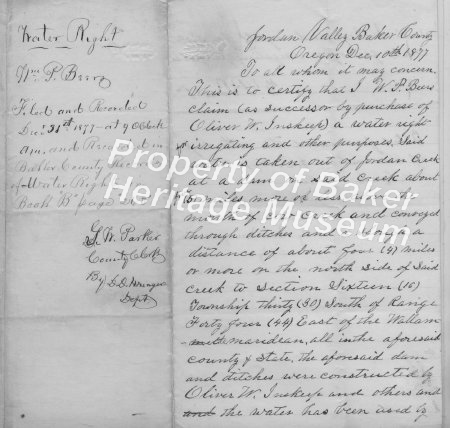 Water Right
Wm. P. Beers
Filed and Recorded
Dec. 31st 1877 - at 9 O'Clock
a.m. and Recorded in
Baker County Records
of Water Right
Book "B" page
G. W. Parker
County Clerk
By
Dept
Jordan Valley Baker County
Oregon Dec. 10th 1877
To all whom it may concern.
This is to certify that I W. P. Beers
claim (as successor by purchase of
Oliver W. Inskeep) a water right
irrigating and other purposes, said
water is taken out of Jordan Creek
at a dam on said Creek about
miles more or less
mouth of Creek and conveyed
through ditches and along a
distance of about four (4) miles
or more on the north side of said
creek to Section Sixteen (16)
Township thirty (30) South of Range
Forty four (44) East of the Wallam
maridean, all in the aforesaid
county & State, the aforesaid dam
and ditches were constructed by
Oliver W. Inskeep and others and
and the water has been used by
Property of Baker
Heritage Museum